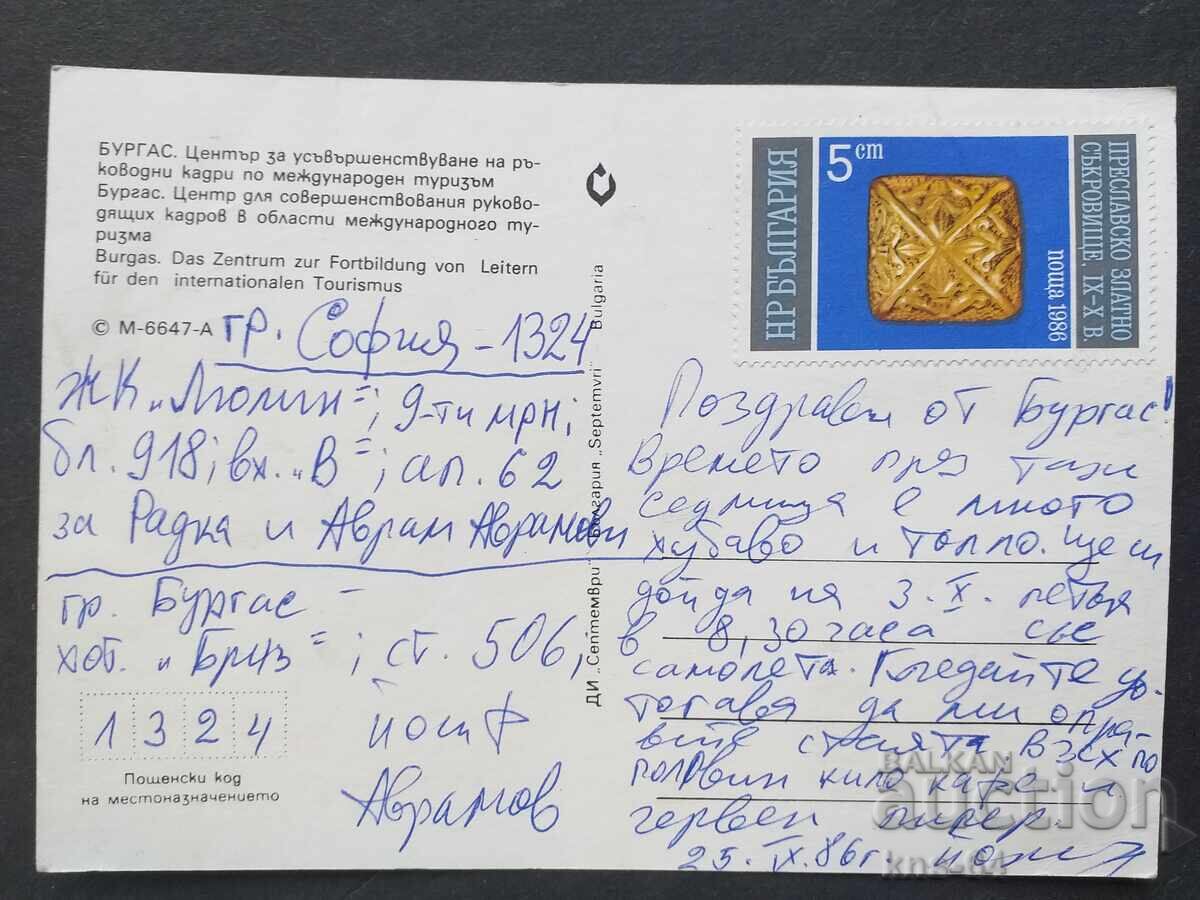 БУРГАС. Център за усъвършенствуване на ръ-
ководни кадри по международен туризъм
Бургас. Центр для совершенствования руково-
дящих кадров в области международного ту-
ризма
Burgas. Das Zentrum zur Fortbildung von Leitern
für den internationalen Tourismus
© М-6647-А
гр. София - 1324
ЖК „Люлин"; 9-ти мрн;
бл. 918; вх. „В"; ап. 62
за Радка и Аврам Аврамови
гр. Бургас -
хот. „Бриз"; ст. 506,
Йосиф
Аврамов
1324
Пощенски код
на местоназначението
ДИ „Септември" България „Septemvri" Bulgaria
НР БЪЛГАРИЯ
5 ст
поща 1986
ПРЕСЛАВСКО ЗЛАТНО
СЪКРОВИЩЕ, IX-X В.
Поздрави от Бургас!
Времето през тази
седмица е много
хубаво и топло. Ще си
дойда на 3.X. петък
в 8,30 часа със
самолета. Гледайте до
тогава да ми опра-
вите стаята. Взех по
половин кило кафе и
червен пипер.
25.IX.86г.
BALKAN
auction
kns-64